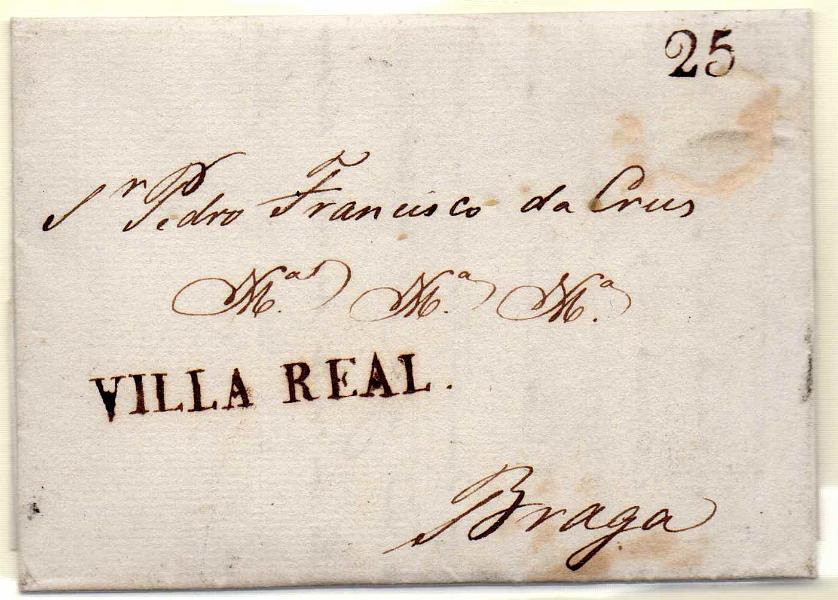 25
Sr Pedro Francisco da Crus
Ma. Ma. Ma.
VILLA REAL.
Braga